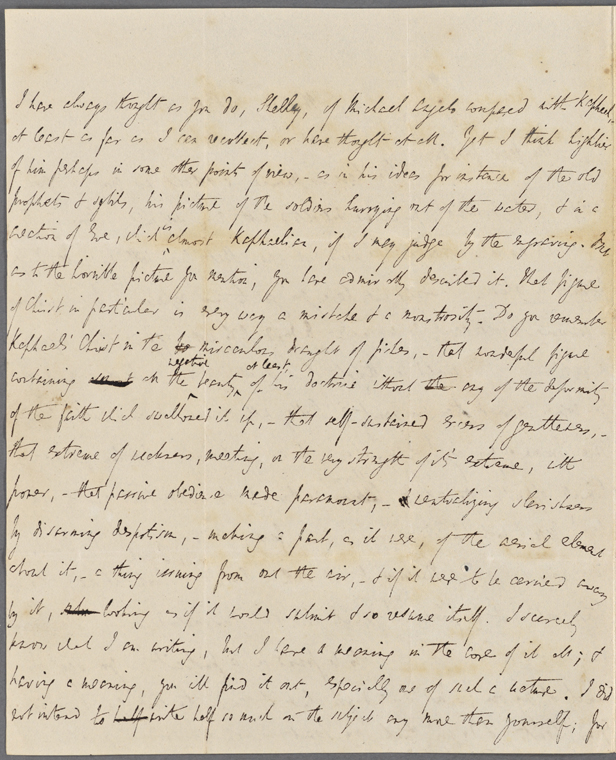 I have always thought as you do, Shelley, of Michael Angelo compared with Raphael,
at least as far as I can recollect, or have thought at all. Yet I think highlier
of him perhaps in some other points of view, - as in his ideas for instance of the old
prophets & sybils, his picture of the soldiers hurrying out of the water, & in a
creation of Eve, which is almost Raphaelian, if I may judge by the engraving. But
as to the horrible picture you mention, you have admirably described it. That figure
of Christ in particular is every way a mistake & a monstrosity. Do you remember
Raphael's Christ in the miraculous draught of fishes, - that wonderful figure
containing all the negative beauty at least, of his doctrine without the any of the deformity
of the faith which swallowed it up, - that self-sustained excess of gentleness, -
that extreme of weakness, meeting, on the very strength of its extreme, with
power, - that passive obedience made paramount, - neutralizing slavishness
by disarming despotism, - making a part, as it were, of the aerial element
about it, - a thing issuing from out the air, - & if it were to be carried away
by it, looking as if it would submit & so resume itself. I scarcely
know what I am writing, but I have a meaning in the core of it all; &
having a meaning, you will find it out, especially one of such a nature. I did
not intend to half write half so much on the subject any more than yourself; for